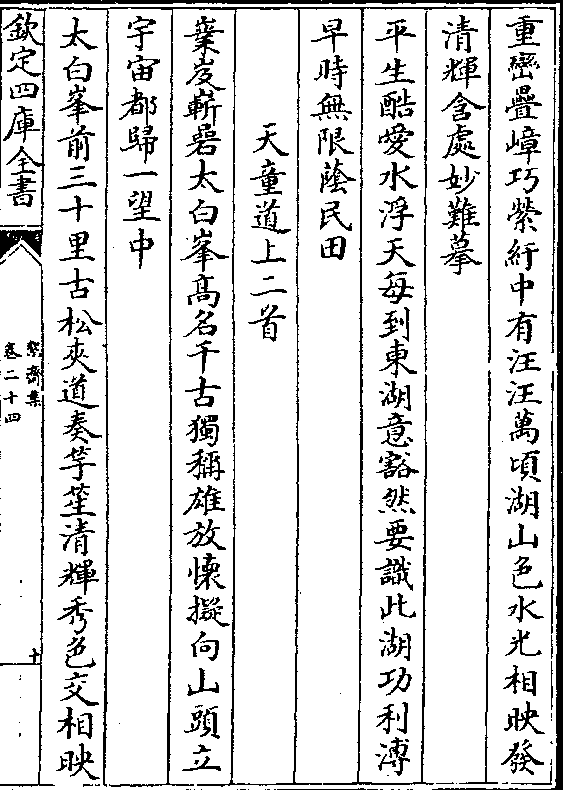 重巒疊嶂巧縈紆中有汪汪萬頃湖山色水光相映發
清輝含處妙難摹
平生酷愛水浮天每到東湖意豁然要識此湖功利溥
旱時無限蔭民田
天童道上二首
嶪岌嶄碞太白峯高名千古獨稱雄放懷擬向山頭立
宇宙都歸一望中
太白峯前三十里古松夾道奏竽笙清輝秀色交相映
欽定四庫全書
絜齋集
卷二十四
十